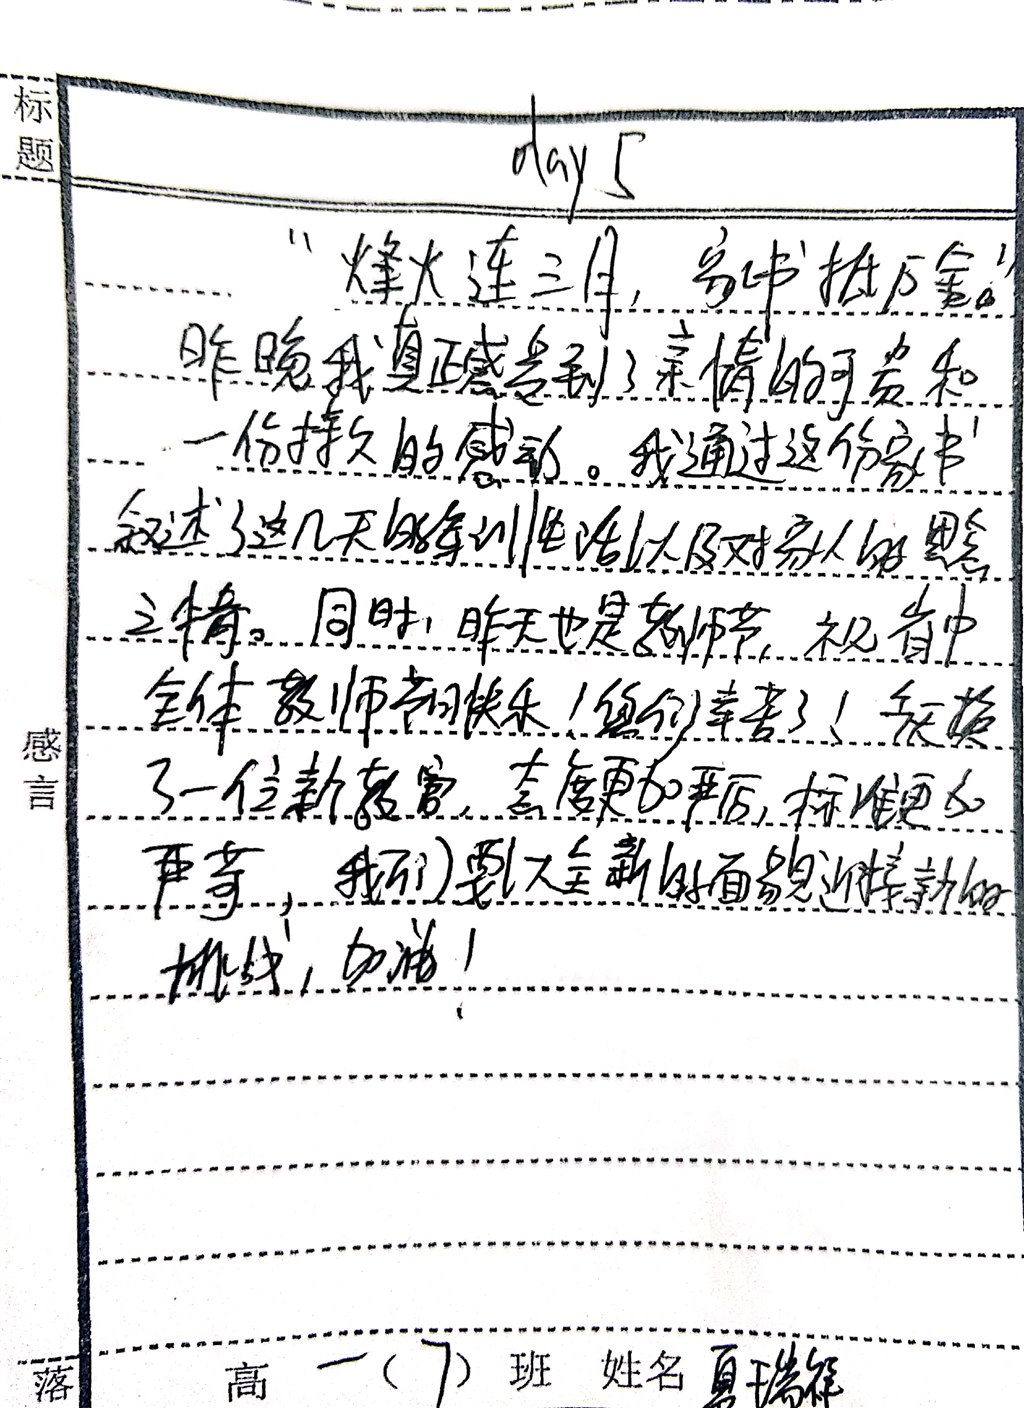 标题
day 5
“烽火连三月，家书抵万金。”
昨晚我真正感受到了亲情的可贵和
一份持久的感动。我通过这份家书
叙述了这几天的军训生活以及对家人的思念
之情。同时，昨天也是教师节，祝省中
全体教师节日快乐！您们辛苦了！今天换
了一位新教官，态度更加严厉，标准更加
严苛，我们要以全新的面貌迎接新的
挑战，加油！
感言
落 高一（7）班 姓名 夏瑞